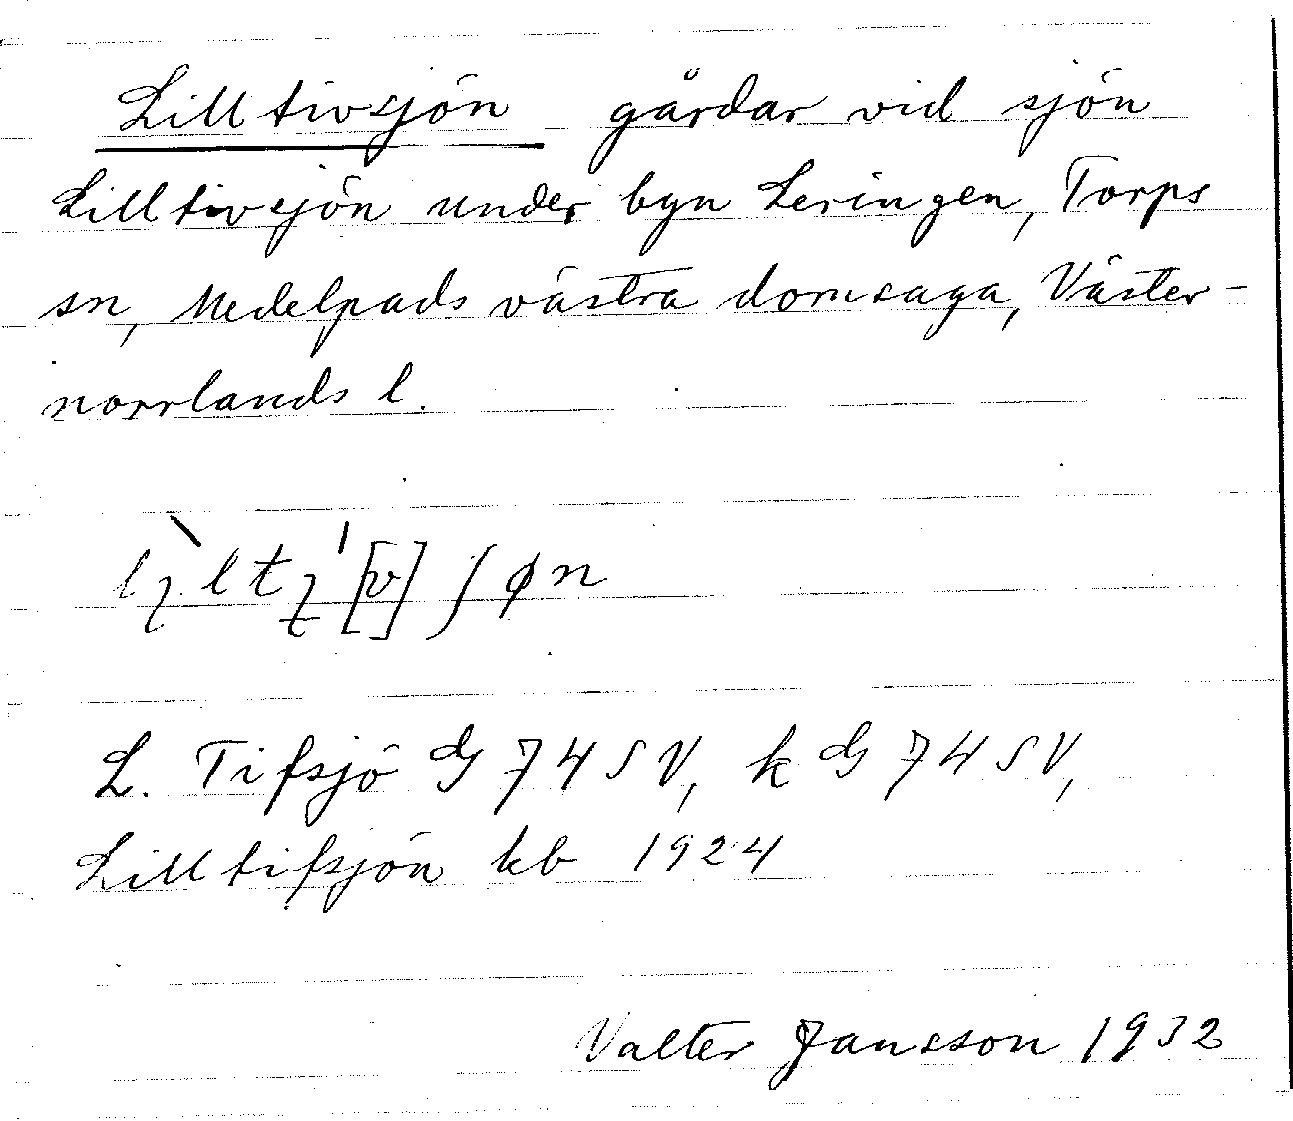 Lilltivsjön gårdar vid sjön
Lilltivsjön under byn Leringen, Torps
sn, Medelpads västra domsaga, Väster-
norrlands l.
L. Tifsjö G 74 SV, k G 74 SV,
Lilltifsjön kb 1924
Valter Jansson 1932